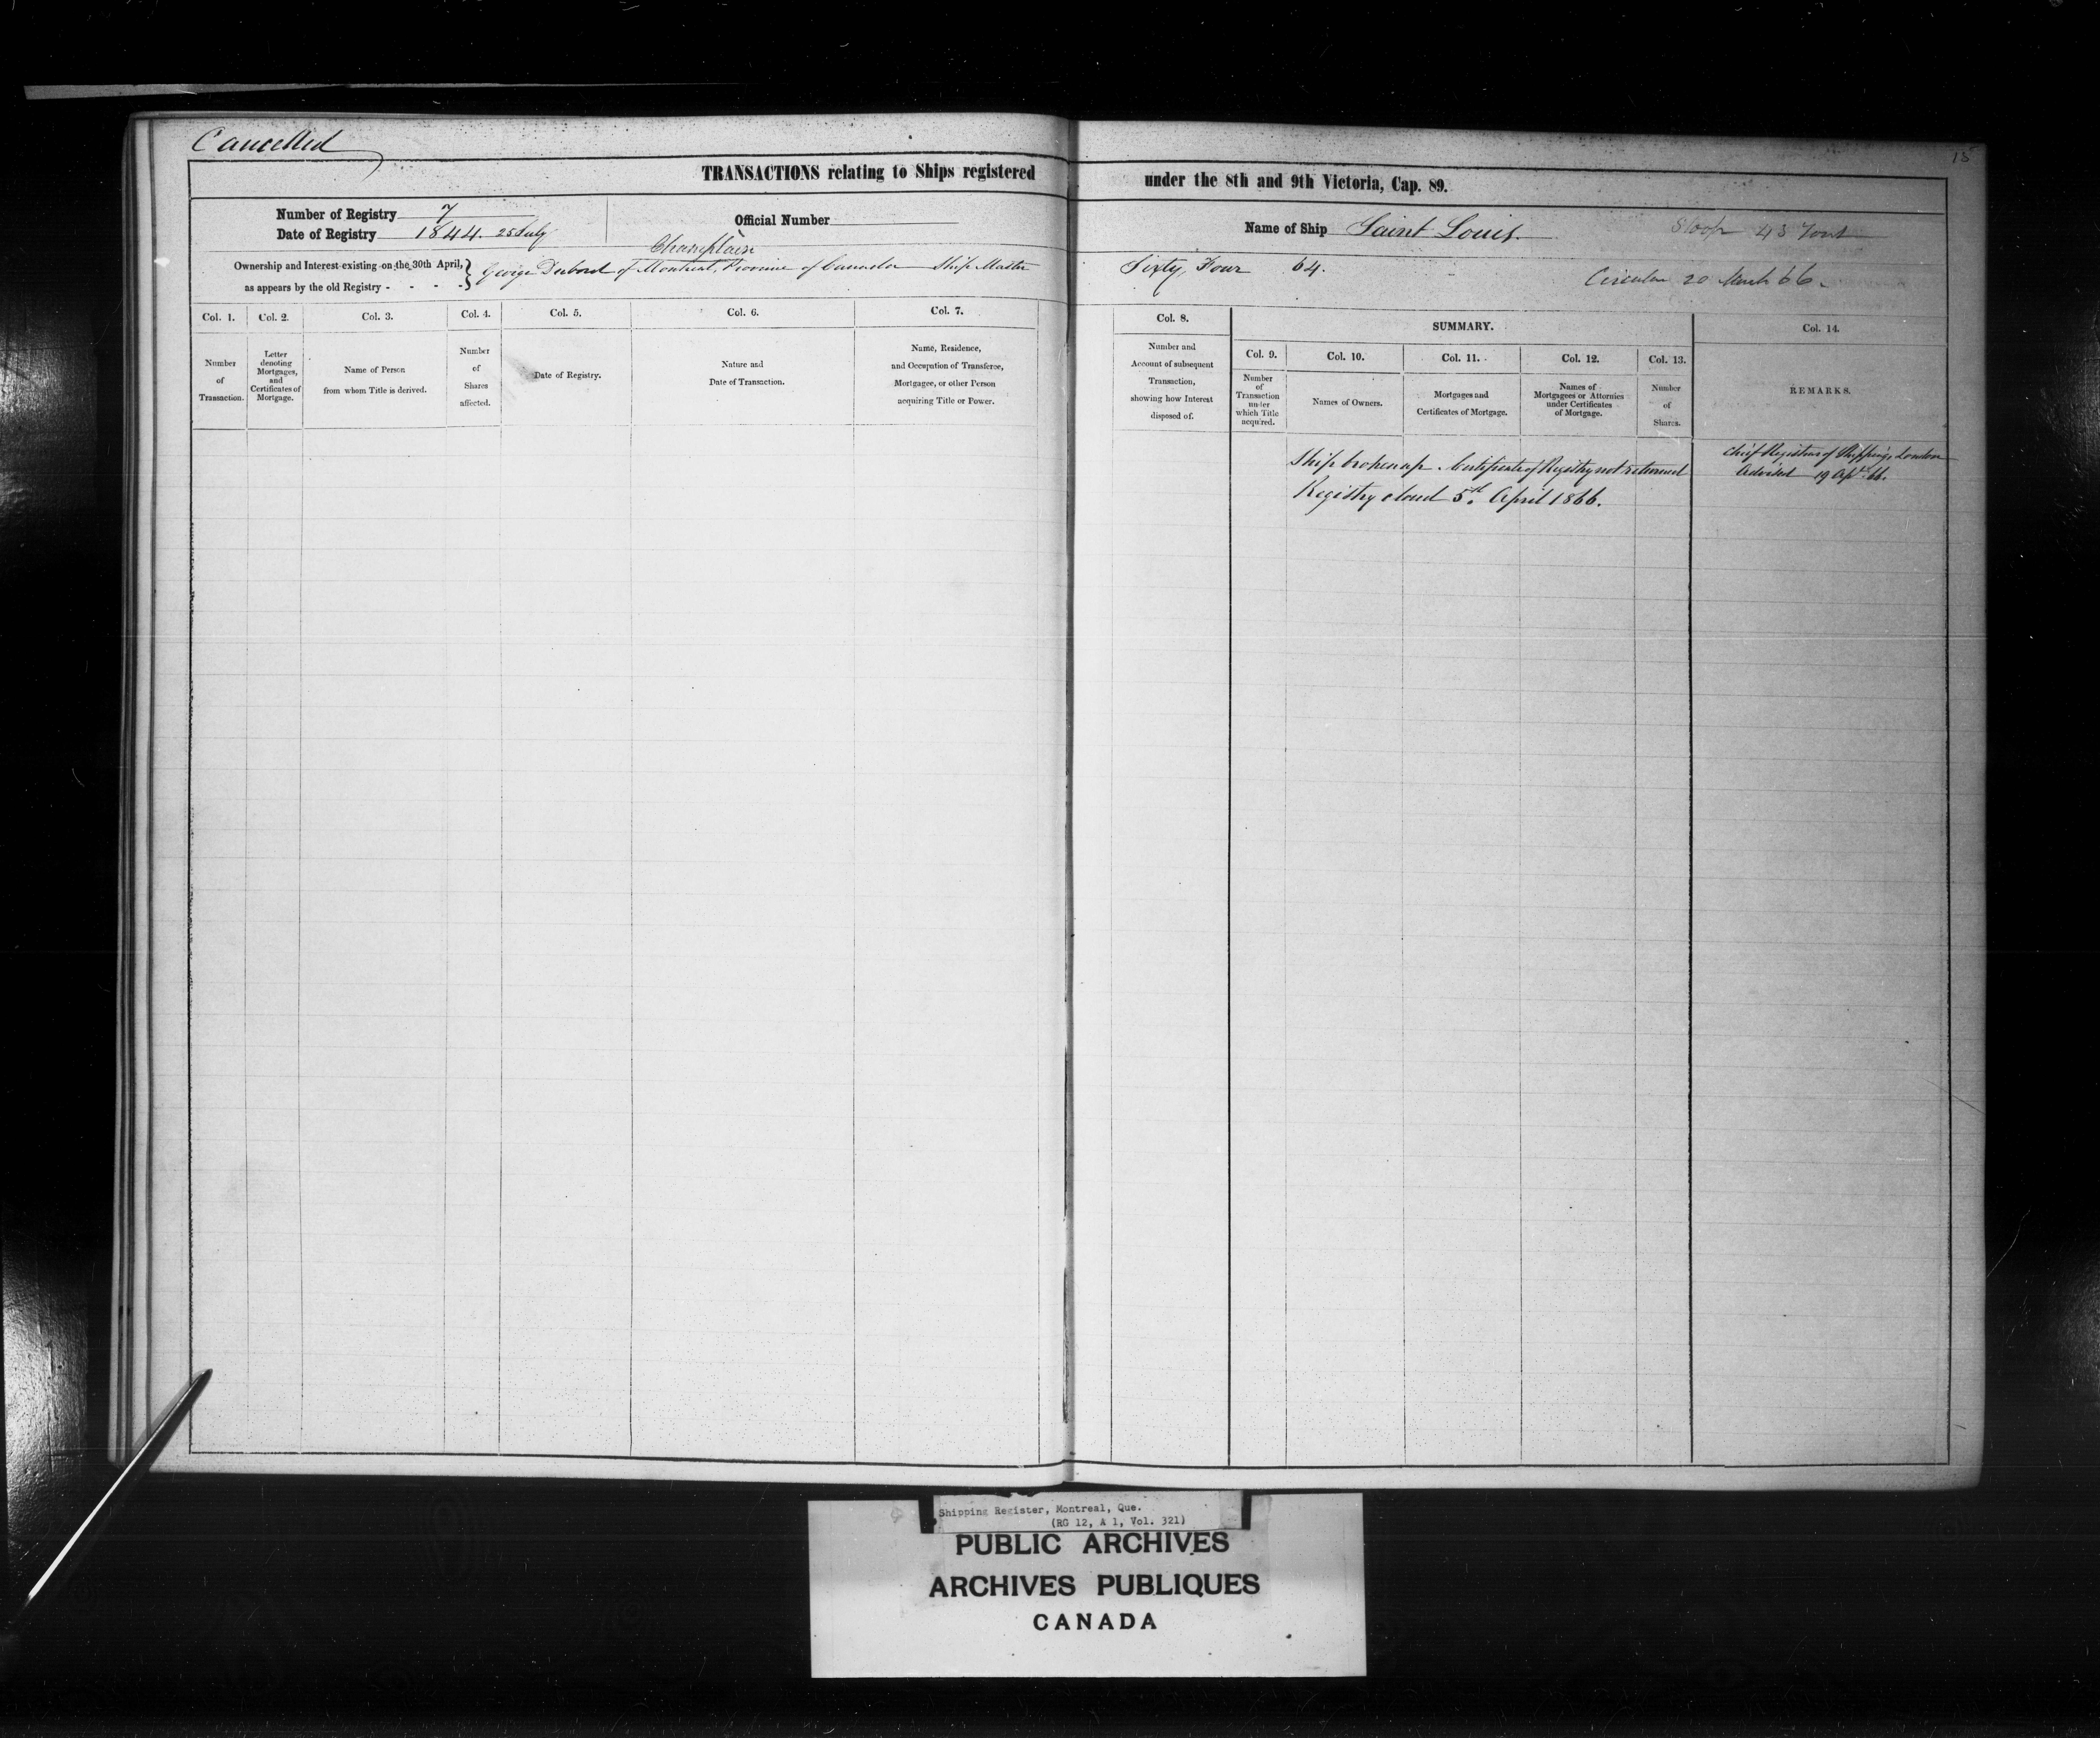 Cancelled
15
TRANSACTIONS relating to Ships registered under the 8th and 9th Victoria, Cap. 89.
Number of Registry 7
Date of Registry 1844. 25 July
Official Number
Name of Ship Saint Louis. Sloop 43 Tons
Champlain
Ownership and Interest existing on the 30th April,
as appears by the old Registry - - - -
George Dubord of Montreal, Province of Canada Ship Master Sixty Four 64.
Circular 20 March 66.
Col. 1.
Number
of
Transaction.
Col. 2.
Letter
denoting
Mortgages,
and
Certificates of
Mortgage.
Col. 3.
Name of Person
from whom Title is derived.
Col. 4.
Number
of
Shares
affected.
Col. 5.
Date of Registry.
Col. 6.
Nature and
Date of Transaction.
Col. 7.
Name, Residence,
and Occupation of Transferee,
Mortgagee, or other Person
acquiring Title or Power.
Col. 8.
Number and
Account of subsequent
Transaction,
showing how Interest
disposed of.
SUMMARY.
Col. 9.
Number
of
Transaction
under
which Title
acquired.
Col. 10.
Names of Owners.
Col. 11.
Mortgages and
Certificates of Mortgage.
Col. 12.
Names of
Mortgagees or Attornies
under Certificates
of Mortgage.
Col. 13.
Number
of
Shares.
Col. 14.
REMARKS.
Ship broken up. Certificate of Registry not returned
Registry closed 5th April 1866.
Chief Registrar of Shipping, London
Advised 19 Apl. 66.
Shipping Register, Montreal, Que.
(RG 12, A 1, Vol. 321)
PUBLIC ARCHIVES
ARCHIVES PUBLIQUES
CANADA